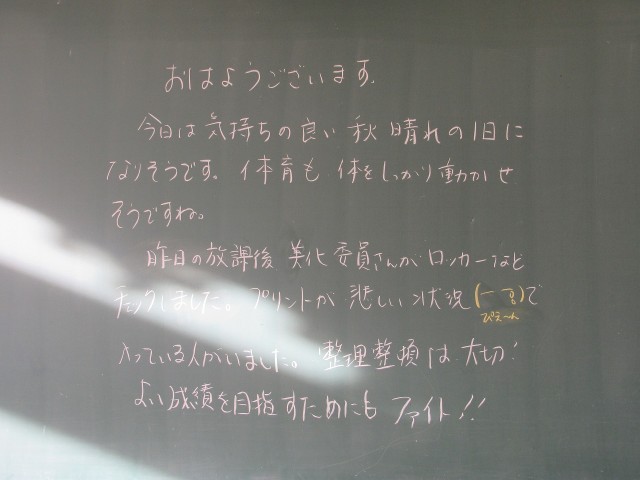 おはようございます.
今日は気持ちの良い秋晴れの1日に
なりそうです。体育も体をしっかり動かせ
そうですね。
昨日の放課後美化委員さんがロッカーなど
チェックしました。プリントが悲しい状況()で
ぴえーん
入っている人がいました。整理整頓は大切!
よい成績を目指すためにもファイト!!